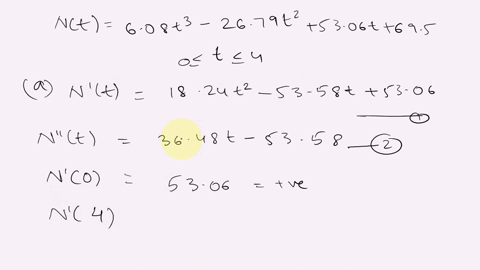 N(t) = 6.08t³ - 26.79t² + 53.06t + 69.5
0 ≤ t ≤ 4
(a) N'(t) = 18.24t² - 53.58t + 53.06 —①
N''(t) = 36.48t - 53.58 —②
N'(0) = 53.06 = +ve
N'(4)